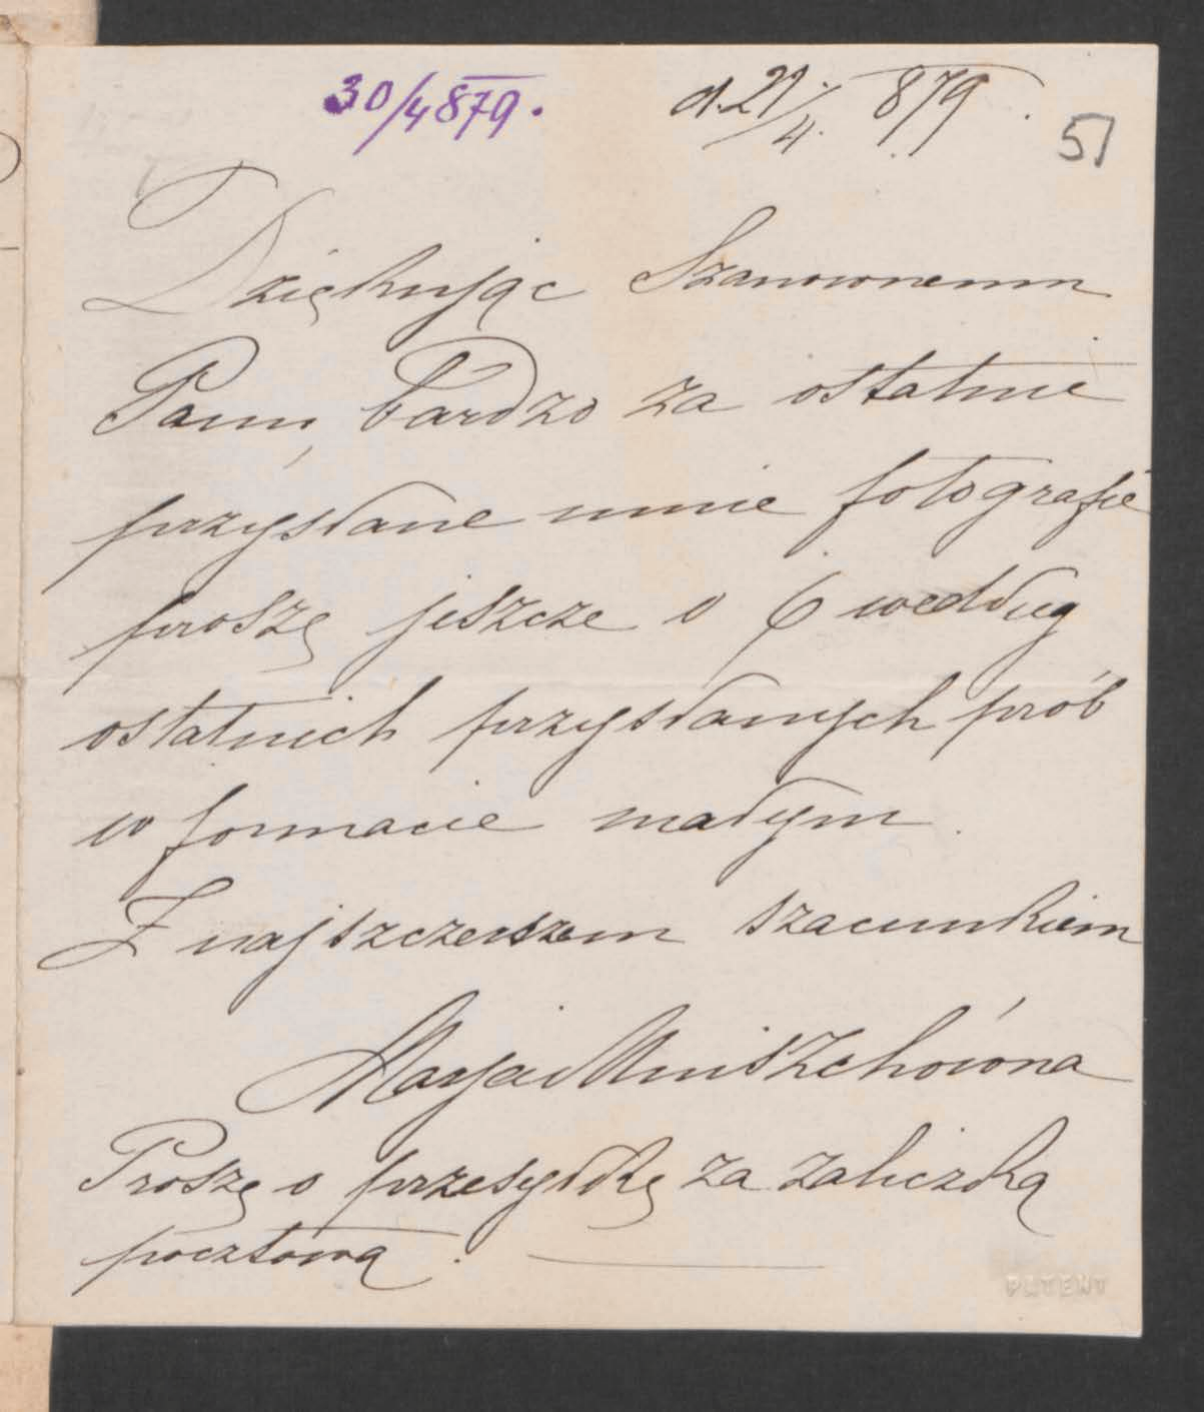 30/4 879. d. 29/4. 879. 51
Dziękując Szanownemu
Panu, bardzo za ostatnie
przysłane mnie fotografie
proszę jeszcze o 6 według
ostatnich przysłanych prób
w formacie małym.
Z najszczerszem szacunkiem
Marja Mniszchówna
Proszę o przesyłkę za zaliczką
pocztową.
PATENT